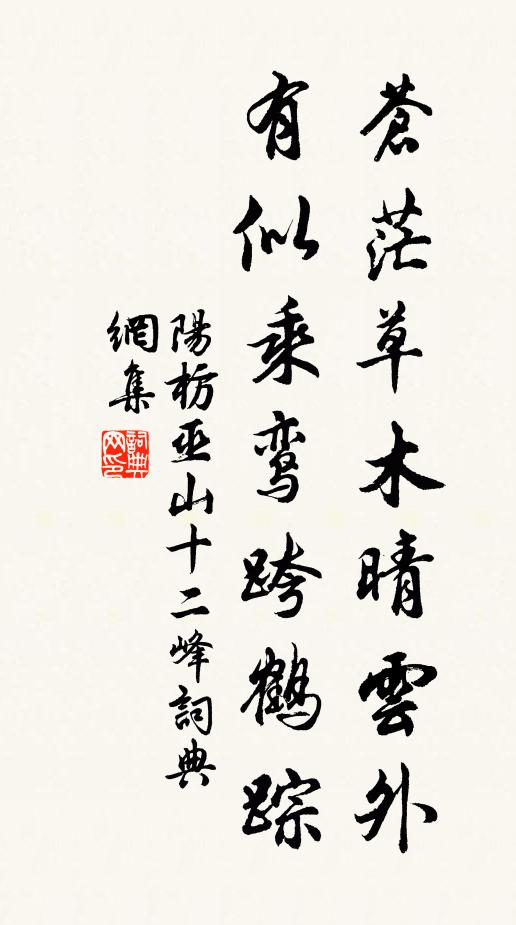 蒼茫草木晴雲外
有似乘鸾跨鹤踪
陽枋巫山十二峰詞典
網集
詞典网印